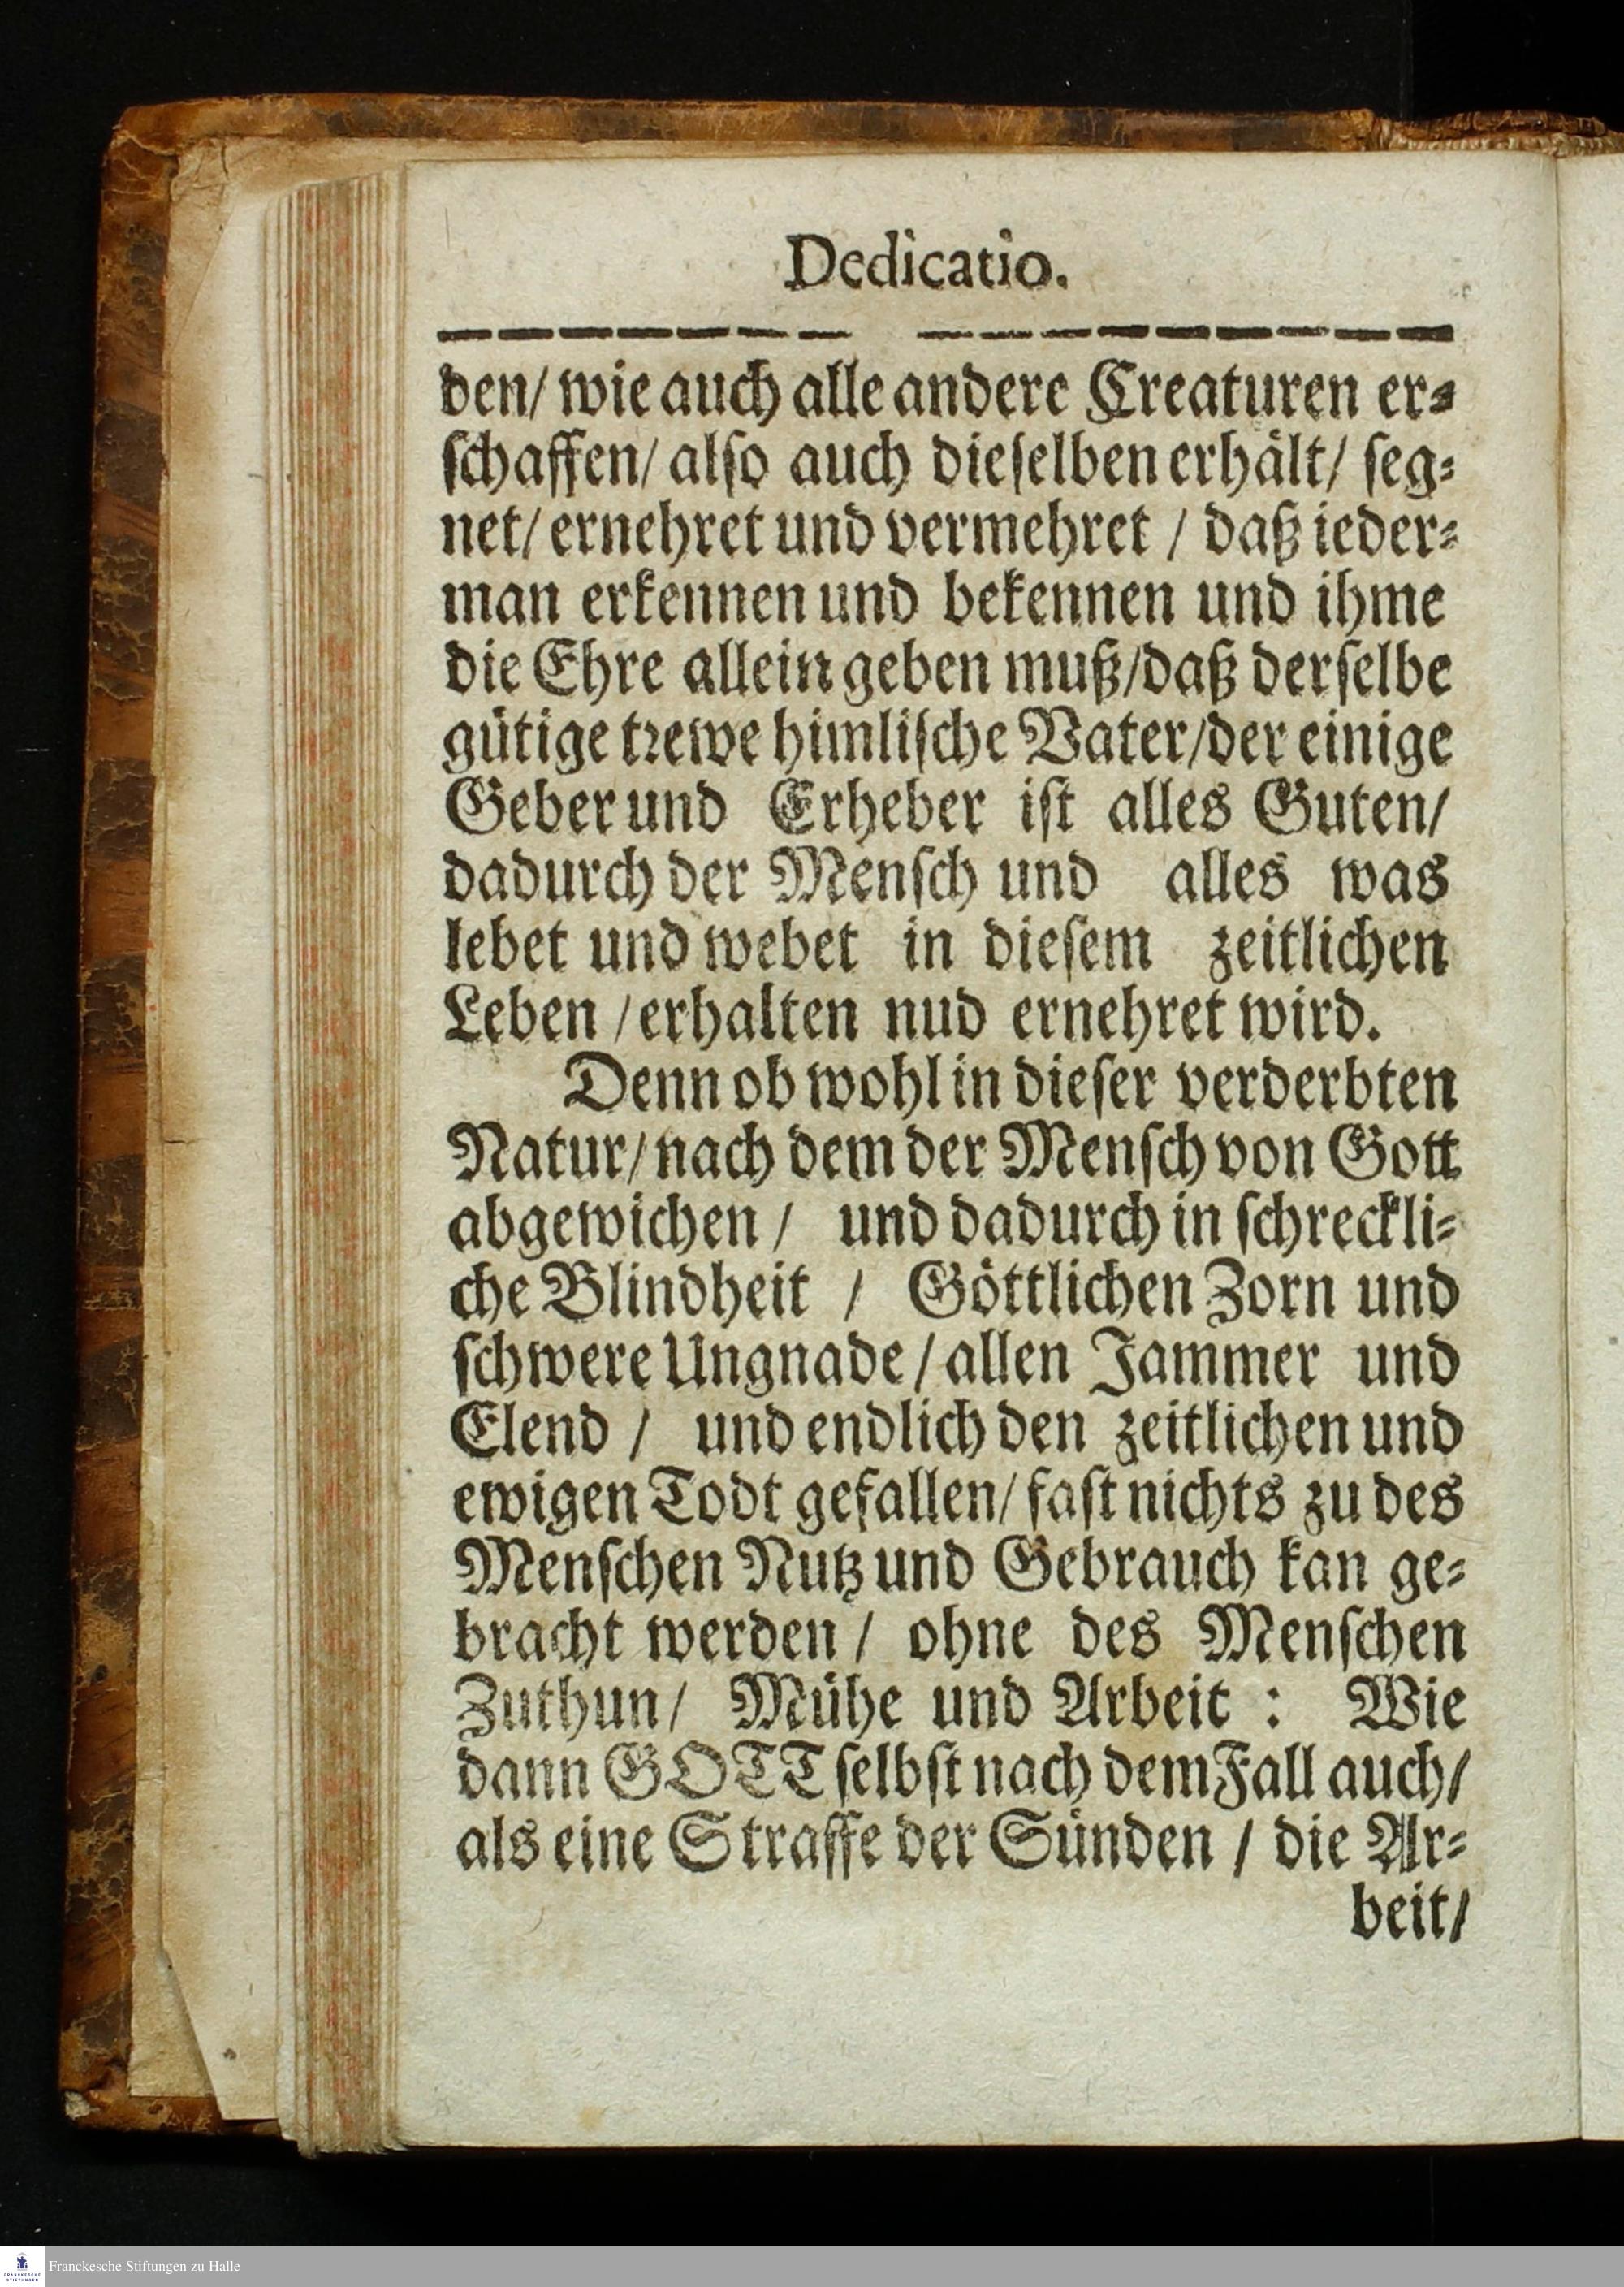 Dedicatio.
den/ wie auch alle andere Creaturen er⸗
ſchaffen/ alſo auch dieſelben erhält/ ſeg⸗
net/ ernehret und vermehret / daß ieder⸗
man erkennen und bekennen und ihme
die Ehre allein geben muß/daß derſelbe
gütige trewe himliſche Vater/der einige
Geber und Erheber iſt alles Guten/
dadurch der Menſch und alles was
lebet und webet in dieſem zeitlichen
Leben /erhalten nud ernehret wird.
Denn ob wohl in dieſer verderbten
Natur/ nach dem der Menſch von Gott
abgewichen / und dadurch in ſchreckli⸗
che Blindheit / Göttlichen Zorn und
ſchwere Ungnade / allen Jammer und
Elend / und endlich den zeitlichen und
ewigen Todt gefallen/ faſt nichts zu des
Menſchen Nutz und Gebrauch kan ge⸗
bracht werden / ohne des Menſchen
Zuthun/ Mühe und Arbeit : Wie
dann GOTT ſelbſt nach dem Fall auch/
als eine Straffe der Sünden / die Ar⸗
beit/
Franckesche Stiftungen zu Halle
FRANCKESCHE
STIFTUNGEN